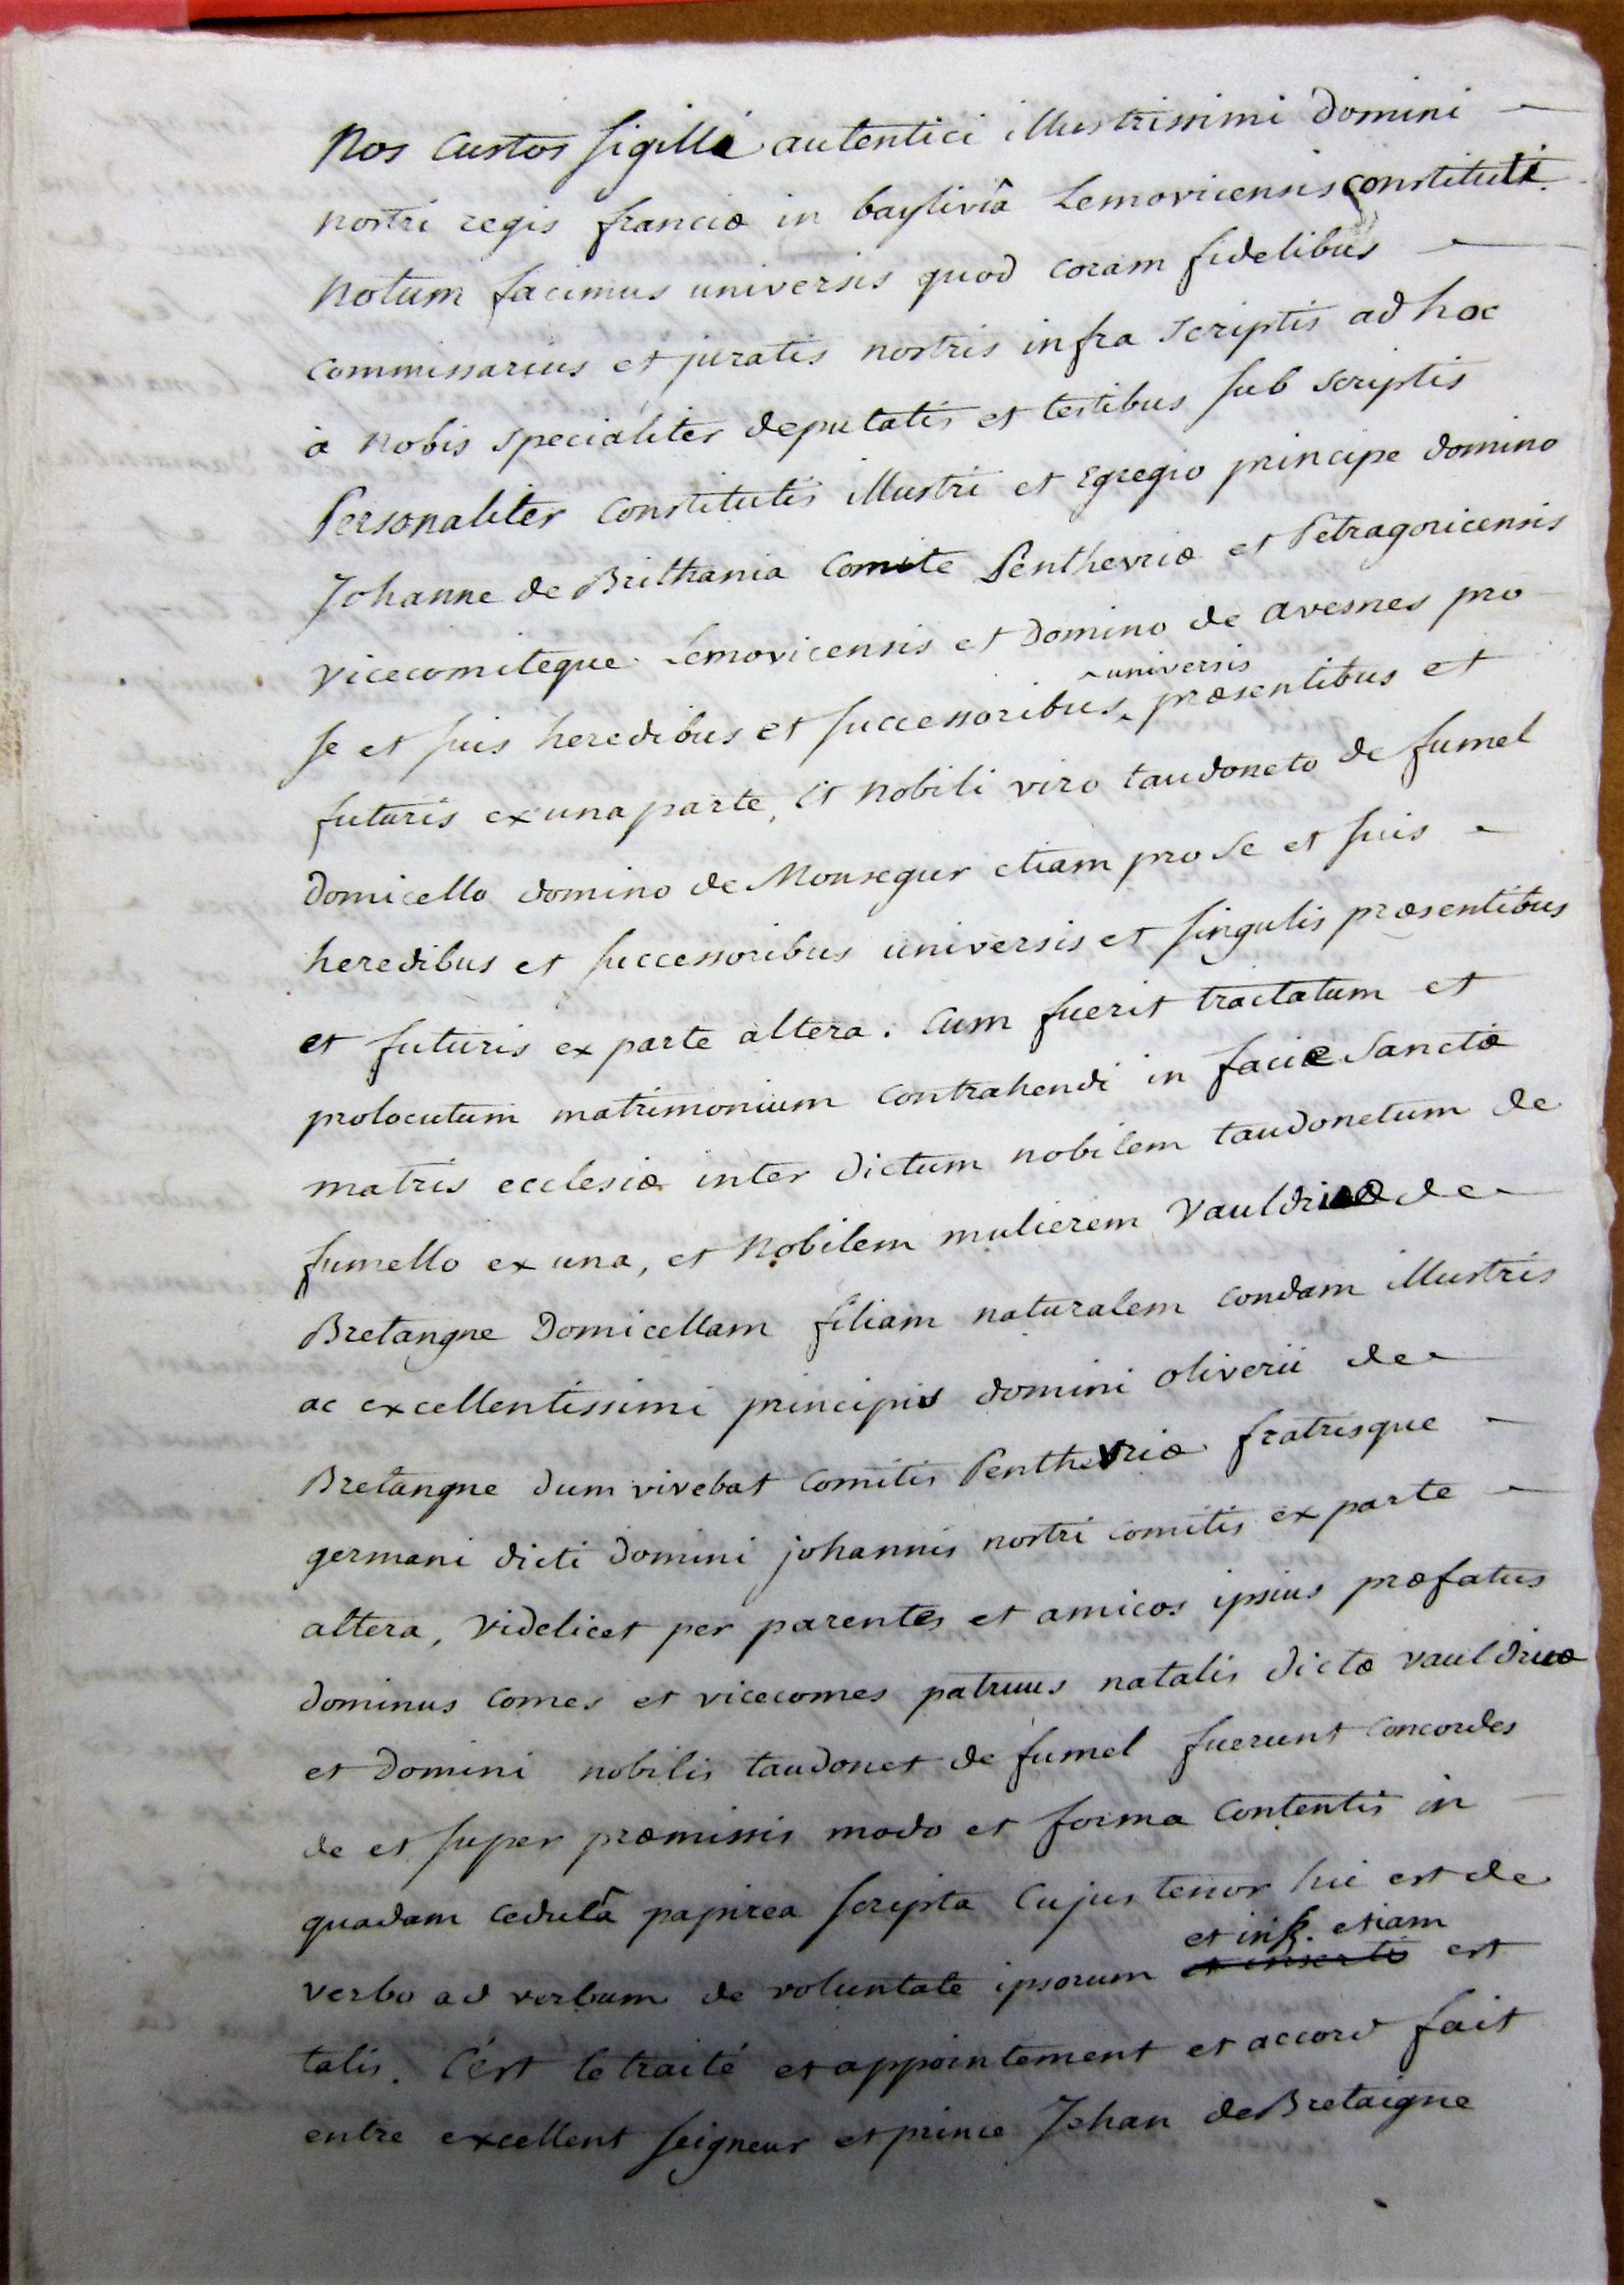 Nos custos sigilli autentici illustrissimi domini
nostri regis franciæ in baylivîa Lemovicensis constituti
notum facimus universis quod coram fidelibus
commissarius et juratis nostris infra scriptis ad hoc
a nobis specialiter deputatis et testibus sub scriptis
Personaliter constitutis illustri et Egregio principe domino
Johanne de Brithania comite Penthevriæ et Petragoricensis
vicecomiteque Lemovicensis et domino de avesnes pro
se et suis heredibus et successoribus universis præsentibus et
futuris ex una parte, et nobili viro taudoneto de fumel
domicello domino de Monsegur etiam pro se et suis
heredibus et successoribus universis et singulis præsentibus
et futuris ex parte altera. Cum fuerit tractatum et
prolocutum matrimonium contrahendi in facie Sanctæ
matris ecclesiæ inter dictum nobilem taudonetum de
fumello ex una, et nobilem mulierem de
Bretangne Domicellam filiam naturalem condam illustris
ac excellentissimi principis domini oliverii de
Bretangne dum vivebat comitis Penthevriæ fratrisque
germani dicti domini johannis nostri comitis ex parte
altera, videlicet per parentes et amicos ipsius præfatus
dominus comes et vicecomes patruus natalis dictæ vauldruæ
et domini nobilis taudonet de fumel fuerunt concordes
de et super præmissis modo et forma contentis in
quadam cedulâ papirea scripta cujus tenor hic est de
verbo ad verbum de voluntate ipsorum et ins. etiam est
talis. C'est le traité et appointement et accord fait
entre excellent seigneur et prince Jehan de Bretaigne